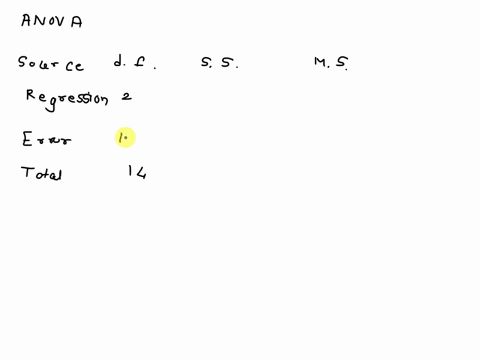 ANOVA
Source d.f. S.S. M.S.
Regression 2
Error 1
Total 14